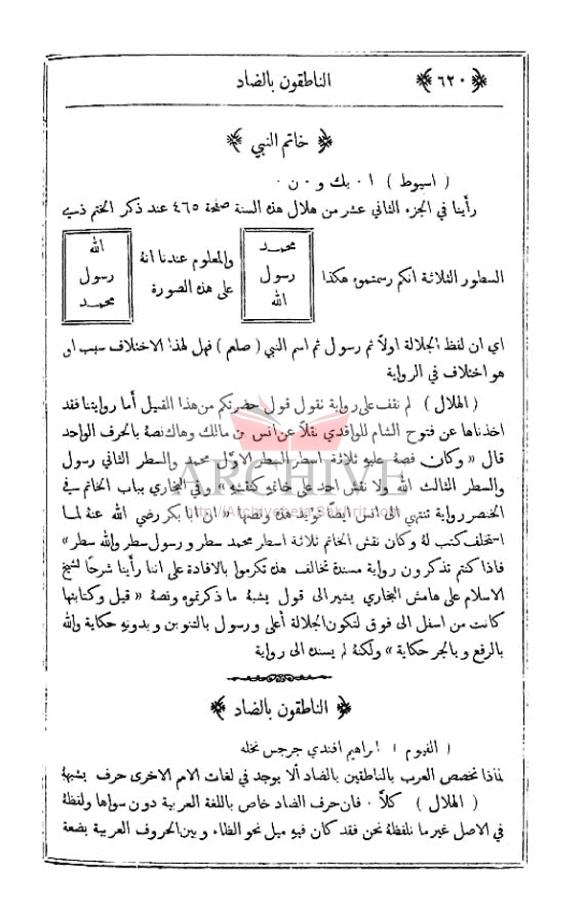 ﴿ ٦٢٠ ﴾ الناطقون بالضاد
﴿ خاتم النبي ﴾
( اسيوط ) ا ٠ بك و ٠ ن ٠
رأينا في الجزء الثاني عشر من هلال هذه السنة صفحة ٤٦٥ عند ذكر الختم ذي
السطور الثلاثة انكم رسمتموه هكذا
محمد
رسول
الله
والمعلوم عندنا انهُ
على هذه الصورة
الله
رسول
محمد
اي ان لفظ الجلالة اولاً ثم رسول ثم اسم النبي ( صلعم ) فهل لهذا الاختلاف سبب او
هو اختلاف في الرواية
( الهلال ) لم نقف على رواية نقول قول حضرتكم من هذا القبيل أما روايتنا فقد
اخذناها عن فتوح الشام للواقدي نقلاً عن انس بن مالك وهاك نصهُ بالحرف الواحد
قال « وكان فصهُ عليهِ ثلاثة اسطر السطر الاوّل محمد والسطر الثاني رسول
والسطر الثالث الله ولا نقش احد على خاتمهِ كنقشهِ » وفي البخاري بباب الخاتم في
الخنصر رواية تنتهي الى انس ايضاً تؤيد هذه ونصها « ان ابا بكر رضي الله عنهُ لما
استخلف كتب لهُ وكان نقش الخاتم ثلاثة اسطر محمد سطر ورسول سطر والله سطر »
فاذا كنتم تذكرون رواية مسندة تخالف هذه تكرموا بالافادة على اننا رأينا شرحًا لشيخ
الاسلام على هامش البخاري يشير الى قول يشبه ما ذكرتموه ونصهُ « قيل وكتابتها
كانت من اسفل الى فوق لتكون الجلالة أعلى ورسول بالتنوين وبدونهِ حكاية والله
بالرفع وبالجر حكاية » ولكنهُ لم يسنده الى رواية
﴿ الناطقون بالضاد ﴾
( الفيوم ) ابراهيم افندي جرجس نخله
لماذا تخصص العرب بالناطقين بالضاد ألا يوجد في لغات الامم الاخرى حرف يشبههُ
( الهلال ) كلاّ ٠ فان حرف الضاد خاص باللغة العربية دون سواها ولفظهُ
في الاصل غير ما نلفظهُ نحن فقد كان فيهِ ميل نحو الظاء وبين الحروف العربية بضعة
ARCHIVE
http://Archivebeta.Sakhrit.com